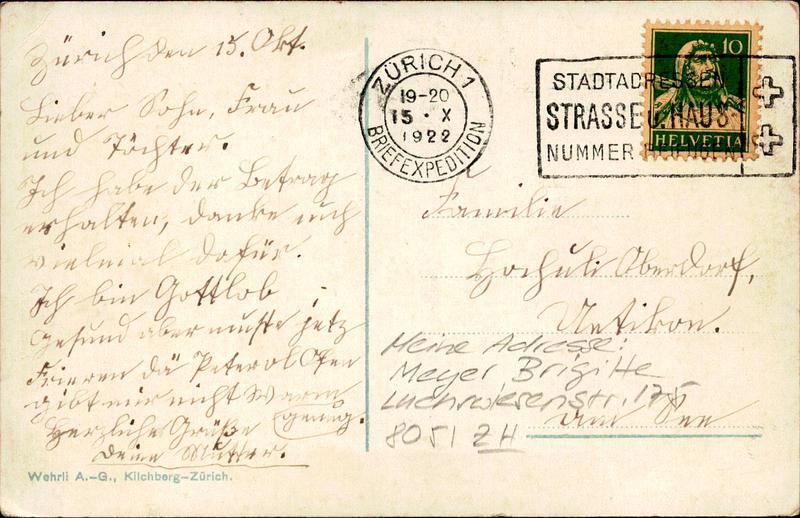 Zürich den 15. Okt.
Lieber Sohn, Frau
und Töchter.
Ich habe der Betrag
erhalten, danke euch
vielmal dafür.
Ich bin Gottlob
gesund aber muste jetz
Frieren dä Peterol Ofen
gibt mir nicht Warm
genug.
Herzliche Grüße
Deine Mutter.
Wehrli A.-G., Kilchberg-Zürich.
ZÜRICH 1
19-20
15 · X
1922
BRIEFEXPEDITION
STADTADRESSEN
STRASSE U. HAUS-
NUMMER
10
HELVETIA
Familie
Hochuli Oberdorf,
Uetikon.
am See
Meine Adresse:
Meyer Brigitte
Luchswiesenstr. 175
8051 ZH